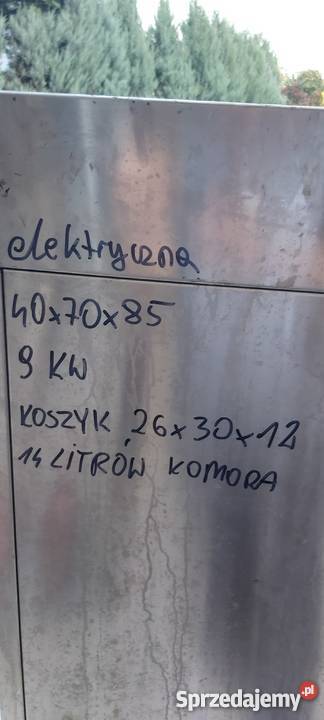 elektryczna
40x70x85
9 KW
KOSZYK 26x30x12
14 LITRÓW KOMORA
Sprzedajemy.pl